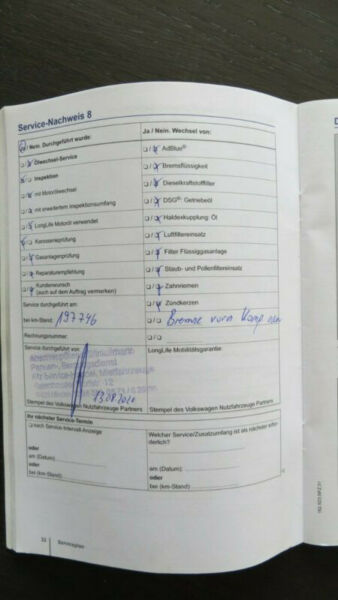 Service-Nachweis 8
Ja / Nein. Durchgeführt wurde:
Ja / Nein. Wechsel von:
Ölwechsel-Service
AdBlue®
Inspektion
Bremsflüssigkeit
mit Motorölwechsel
Dieselkraftstofffilter
mit erweitertem Inspektionsumfang
DSG®: Getriebeöl
LongLife Motoröl verwendet
Haldexkupplung: Öl
Karosserieprüfung
Luftfiltereinsatz
Gasanlagenprüfung
Filter Flüssiggasanlage
Reparaturempfehlung
Staub- und Pollenfiltereinsatz
Kundenwunsch
(auch auf dem Auftrag vermerken)
Zahnriemen
Service durchgeführt am:
Zündkerzen
bei km-Stand: 197746
Bremse vorn
Rechnungsnummer:
Service durchgeführt von:
LongLife Mobilitätsgarantie
13.08.2020
Stempel des Volkswagen Nutzfahrzeuge Partners
Stempel des Volkswagen Nutzfahrzeuge Partners
Ihr nächster Service-Termin
nach Service-Intervall-Anzeige
Welcher Service/Zusatzumfang ist als nächster erforderlich?
oder
am (Datum)
am (Datum)
oder
oder
bei (km-Stand)
bei (km-Stand)
32
Serviceplan